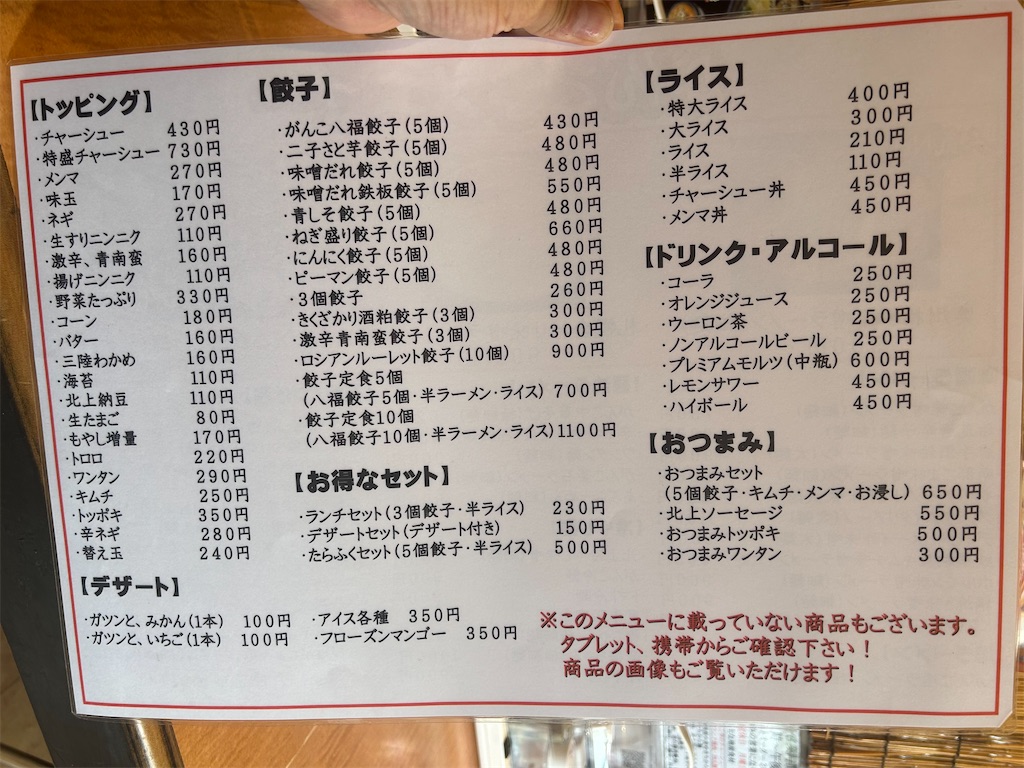 【トッピング】
・チャーシュー 430円
・特盛チャーシュー 730円
・メンマ 270円
・味玉 170円
・ネギ 270円
・生すりニンニク 110円
・激辛、青南蛮 160円
・揚げニンニク 110円
・野菜たっぷり 330円
・コーン 180円
・バター 160円
・三陸わかめ 160円
・海苔 110円
・北上納豆 110円
・生たまご 80円
・もやし増量 170円
・トロロ 220円
・ワンタン 290円
・キムチ 250円
・トッポキ 350円
・辛ネギ 280円
・替え玉 240円
【餃子】
・がんこ八福餃子(5個) 430円
・二子さと芋餃子(5個) 480円
・味噌だれ餃子(5個) 480円
・味噌だれ鉄板餃子(5個) 550円
・青しそ餃子(5個) 480円
・ねぎ盛り餃子(5個) 660円
・にんにく餃子(5個) 480円
・ピーマン餃子(5個) 480円
・3個餃子 260円
・きくざかり酒粕餃子(3個) 300円
・激辛青南蛮餃子(3個) 300円
・ロシアンルーレット餃子(10個) 900円
・餃子定食5個
(八福餃子5個・半ラーメン・ライス) 700円
・餃子定食10個
(八福餃子10個・半ラーメン・ライス) 1100円
【お得なセット】
・ランチセット(3個餃子・半ライス) 230円
・デザートセット(デザート付き) 150円
・たらふくセット(5個餃子・半ライス) 500円
【ライス】
・特大ライス 400円
・大ライス 300円
・ライス 210円
・半ライス 110円
・チャーシュー丼 450円
・メンマ丼 450円
【ドリンク・アルコール】
・コーラ 250円
・オレンジジュース 250円
・ウーロン茶 250円
・ノンアルコールビール 250円
・プレミアムモルツ(中瓶) 600円
・レモンサワー 450円
・ハイボール 450円
【おつまみ】
・おつまみセット
(5個餃子・キムチ・メンマ・お浸し) 650円
・北上ソーセージ 550円
・おつまみトッポキ 500円
・おつまみワンタン 300円
【デザート】
・ガツンと、みかん(1本) 100円
・ガツンと、いちご(1本) 100円
・アイス各種 350円
・フローズンマンゴー 350円
※このメニューに載っていない商品もございます。
タブレット、携帯からご確認下さい！
商品の画像もご覧いただけます！